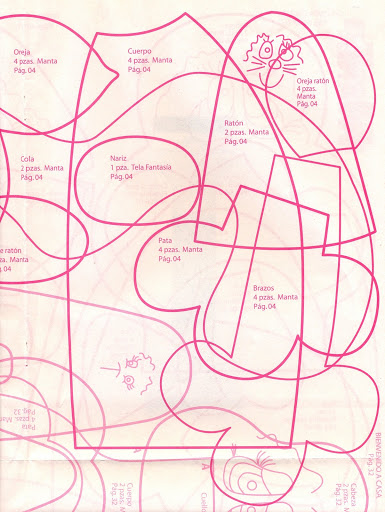 Oreja
4 pzas. Manta
Pág. 04
Cuerpo
4 pzas. Manta
Pág. 04
Oreja ratón
4 pzas.
Manta
Pág. 04
Ratón
2 pzas. Manta
Pág. 04
Cola
2 pzas. Manta
Pág. 04
Nariz
1 pza. Tela Fantasía
Pág. 04
ratón
Manta
04
Pata
4 pzas. Manta
Pág. 04
Brazos
4 pzas. Manta
Pág. 04
Pata
4 pzas.
Pág. 32
BIENVENIDO A CASA
Pág. 32
Cuerpo
2 pzas.
Pág. 32
A
Cabeza
2 pzas.
Pág. 32